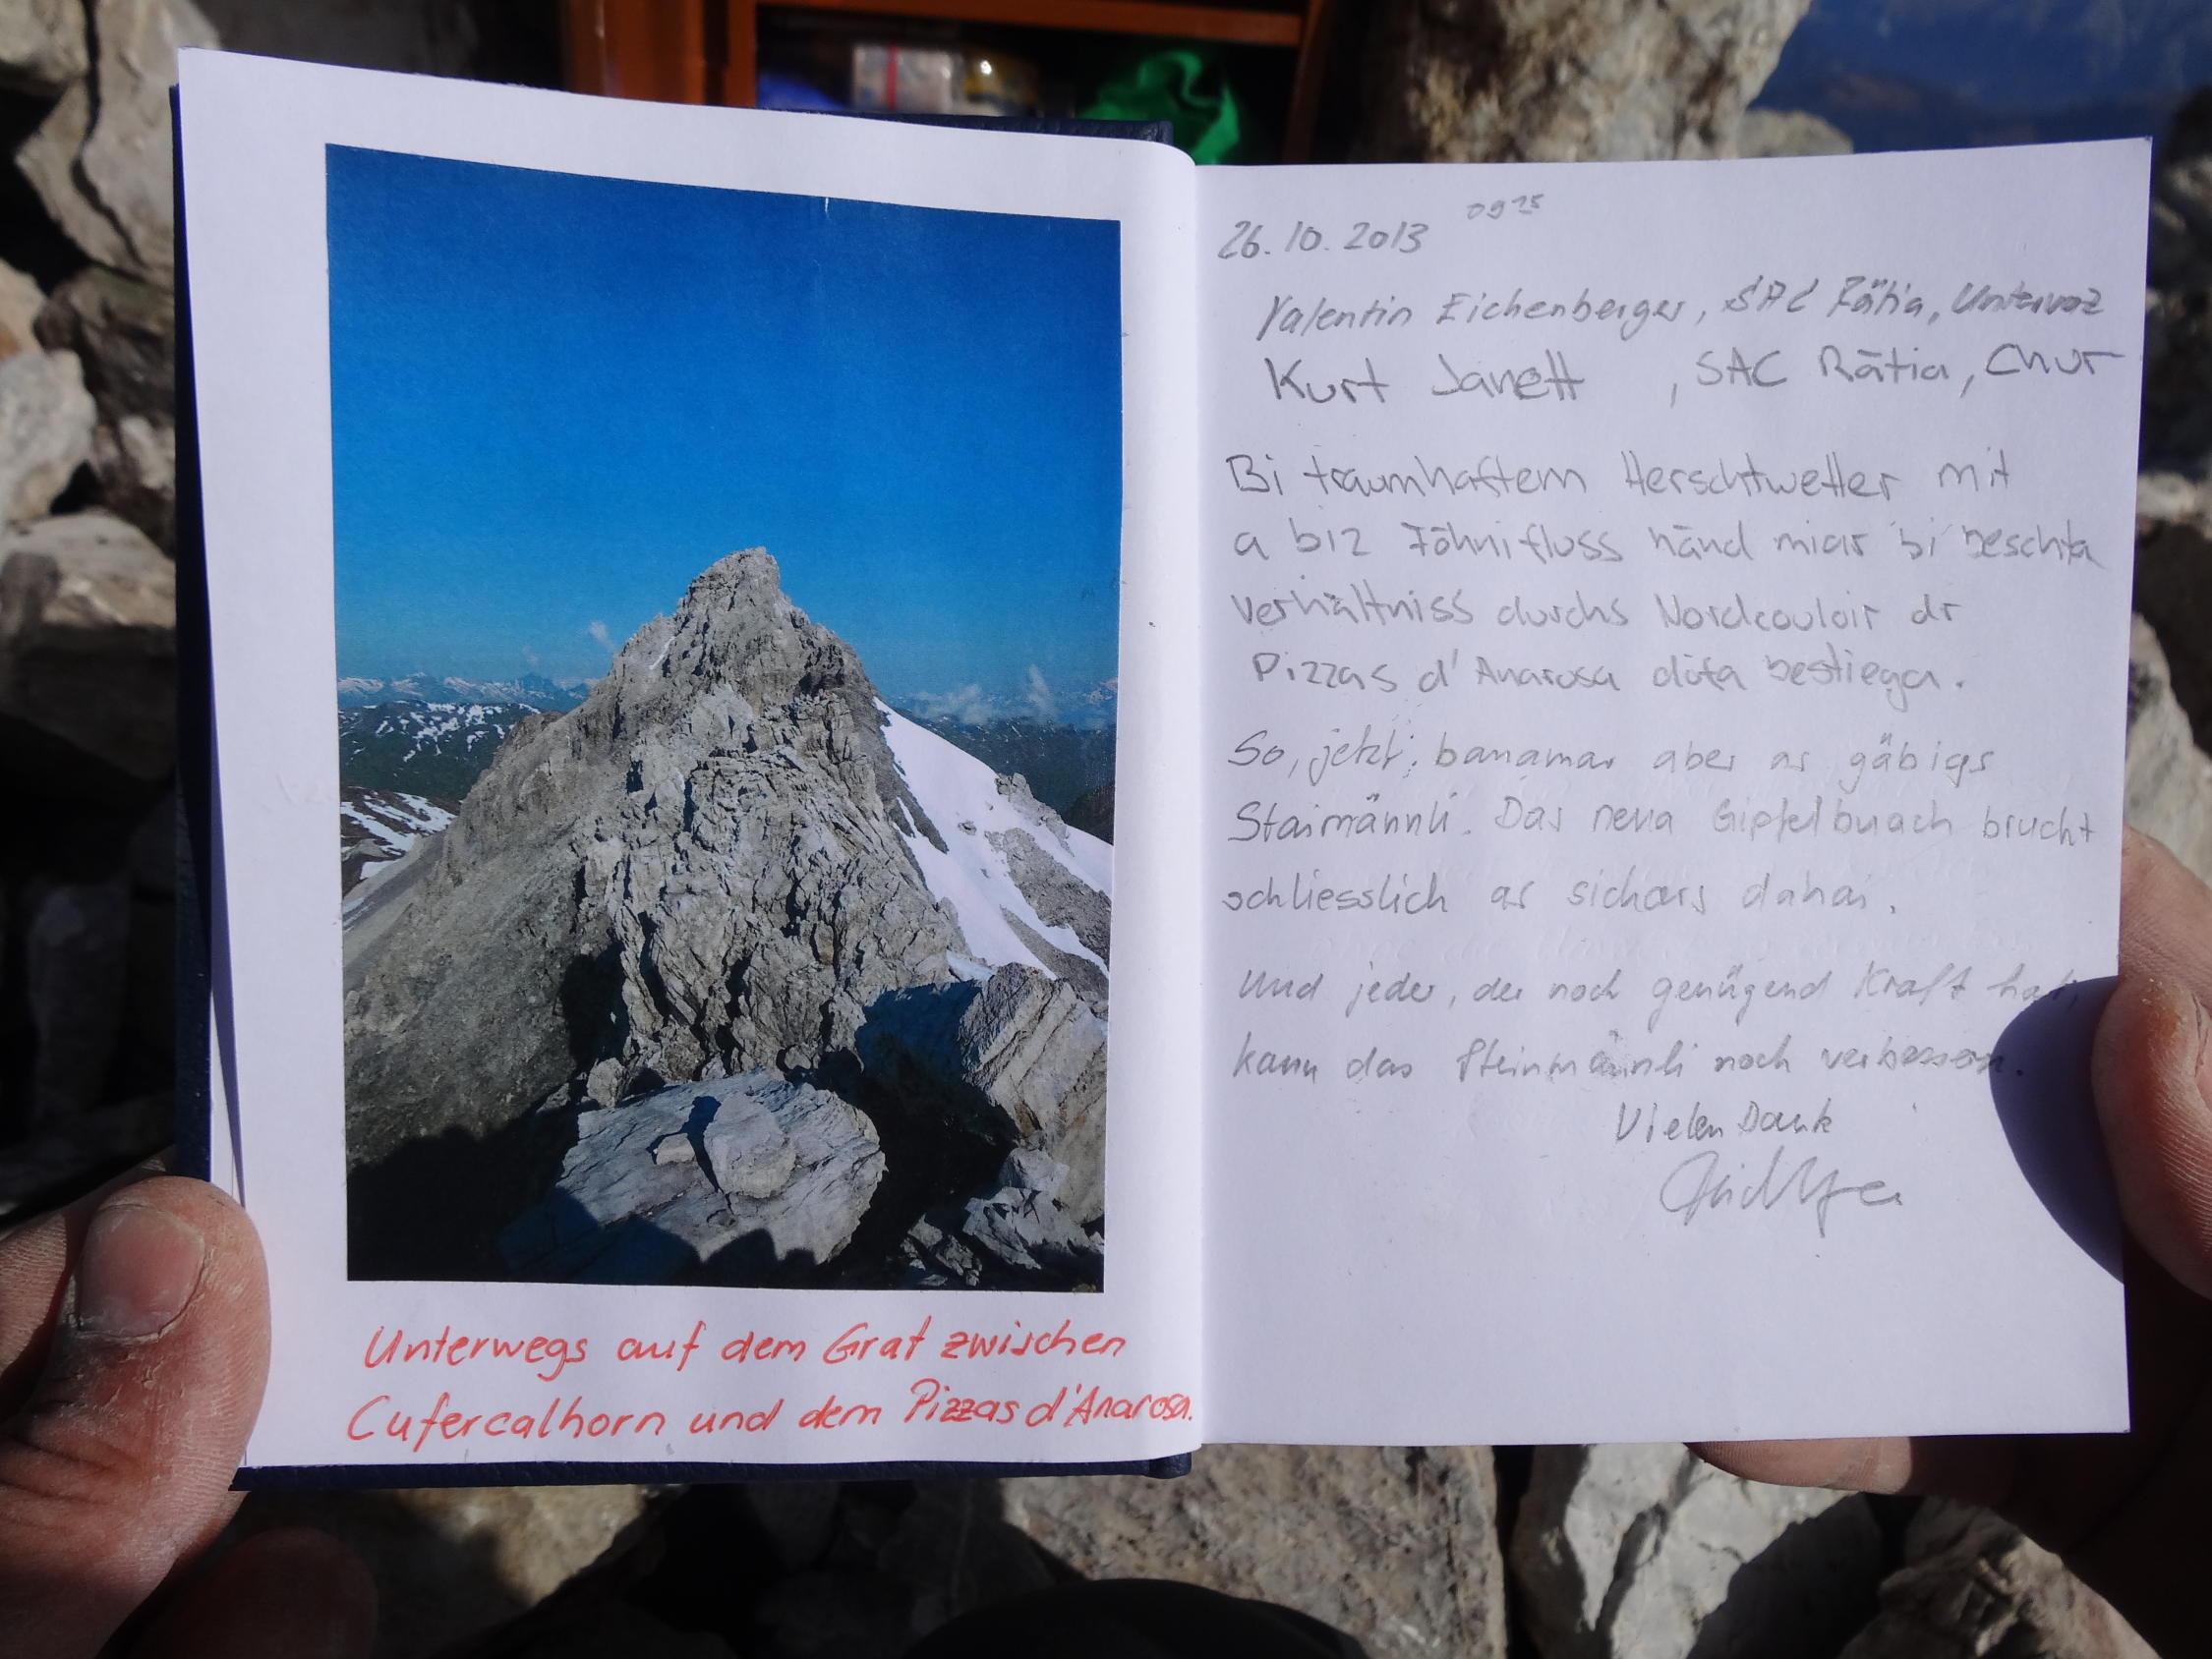 Unterwegs auf dem Grat zwischen
Cufercalhorn und dem Pizzas d'Anarosa.
26.10.2013 09 25
Valentin Eichenberger, SAC Rätia, Untervaz
Kurt Janett, SAC Rätia, Chur
Bi traumhaftem Herschtwetter mit
a biz Föhnifluss händ miar bi beschta
verhältniss durchs Nordcouloir dr
Pizzas d'Anarosa döta bestiega.
So, jetzt banamar aber as gäbigs
Staimännli. Das neua Gipfelbuach brucht
schliesslich as sichars dahai.
Und jeder, der noch genügend Kraft hat,
kann das Steinmännli noch verbessern.
Vielen Dank